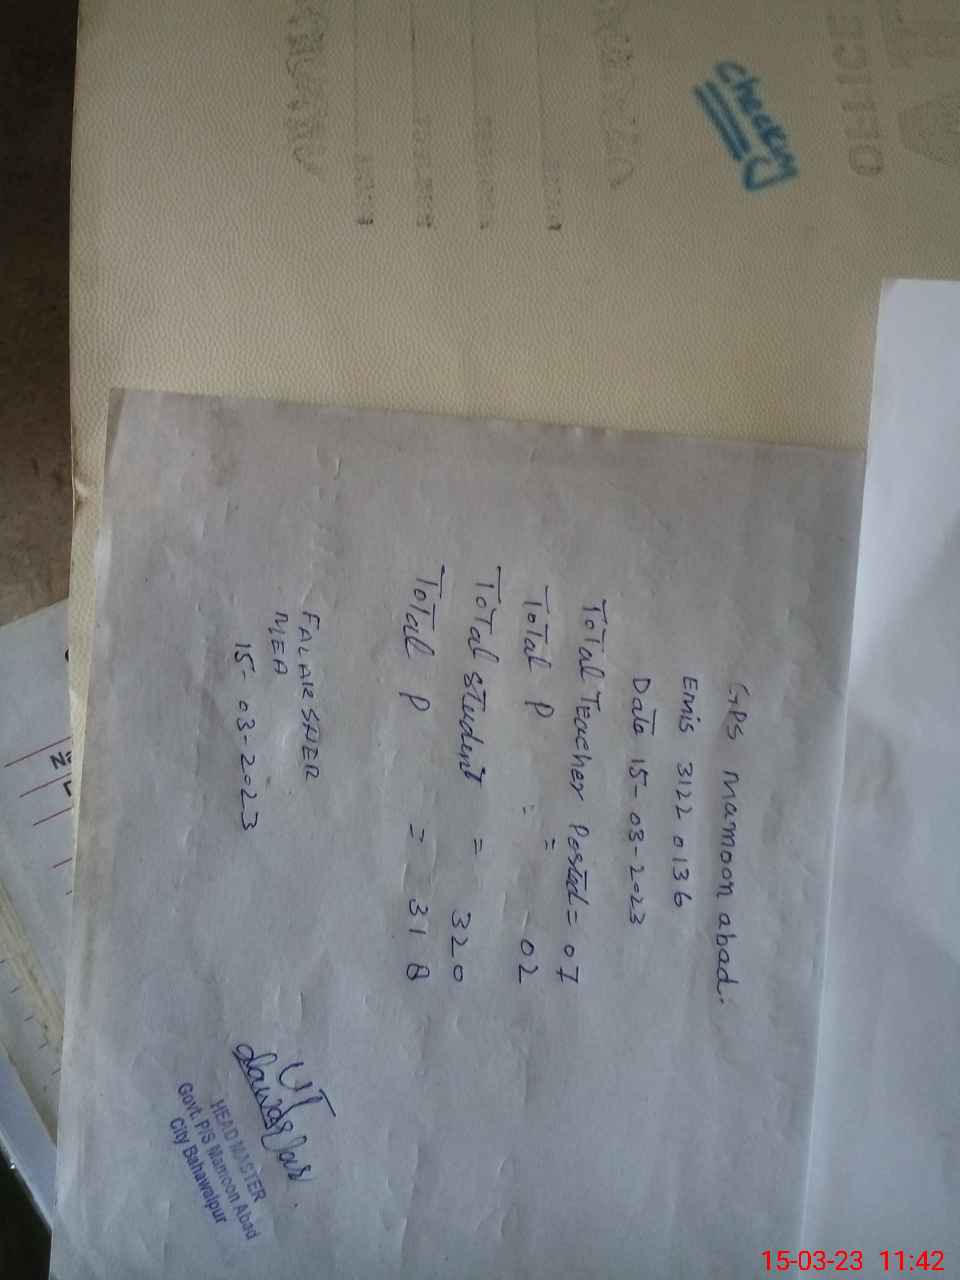 checking
GPS mamoon abad.
Emis 3122 0136
Date 15-03-2023
Total Teacher Posted = 07
Total P = 02
Total student = 320
Total P = 318
FALAK SHER
MEA
15-03-2023
HEAD MASTER
Govt. P/S Mamoon Abad
City Bahawalpur
15-03-23 11:42